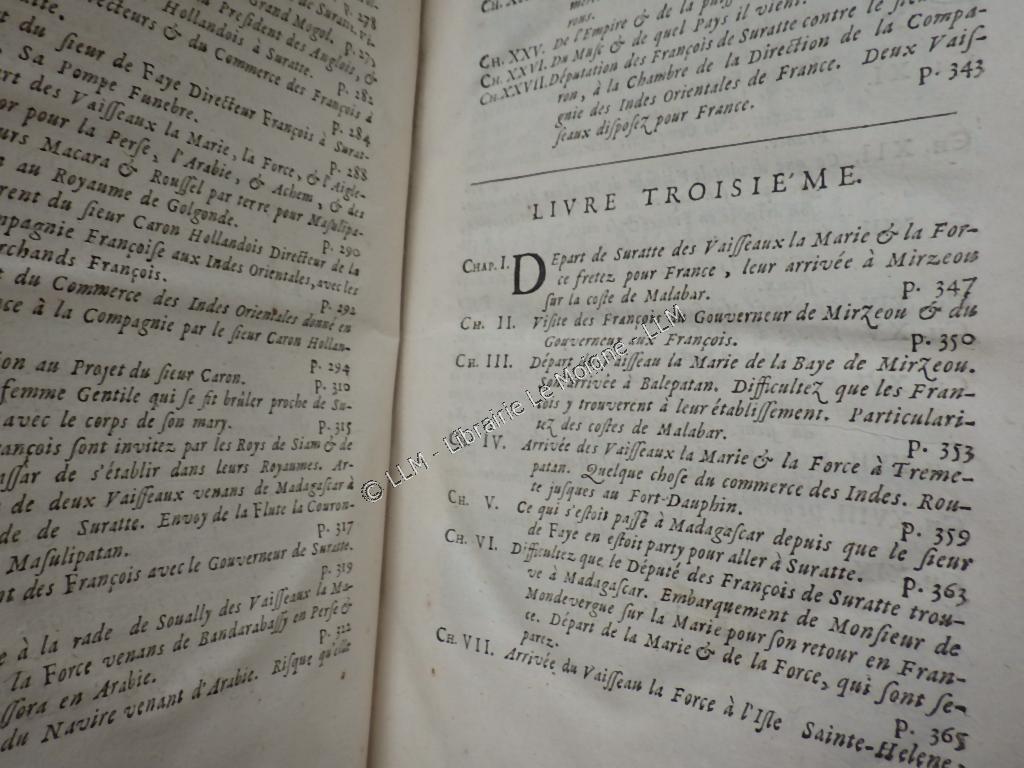 de Surate. Vi-
Grand Mogol. p. 275
President des Anglois, &
Hollandois à Suratte.
Directeurs & du Commerce des François à
p. 282
du sieur de Faye Directeur François à Surat-
Sa Pompe Funebre. p. 284
des Vaisseaux la Marie, la Force, & l'Aigle-
pour la Perse, l'Arabie, & Achem, & des
p. 288
Macara & Roussel par terre pour Masulipa-
au Royaume de Golgonde.
du sieur Caron Hollandois Directeur de la
p. 290
Françoise aux Indes Orientales, avec les
François.
du Commerce des Indes Orientales donné en
p. 292
à la Compagnie par le sieur Caron Hollan-
p. 294
au Projet du sieur Caron.
p. 310
femme Gentile qui se fit brûler proche de Su-
avec le corps de son mary. p. 315
sont invitez par les Roys de Siam & de
de s'établir dans leurs Royaumes. Ar-
de deux Vaisseaux venans de Madagascar à
de Suratte. Envoy de la Flute la Couron-
Masulipatan. p. 317
des François avec le Gouverneur de Suratte.
p. 319
à la rade de Soually des Vaisseaux la Ma-
la Force venans de Bandarabassy en Perse &
en Arabie. p. 322
du Navire venant d'Arabie. Risque qu'elle
CH. XXV. De l'Empire & de la
CH. XXVI. Du Musc & de quel Pays il vient.
CH. XXVII. Députation des François de Suratte contre le sieur
ron, à la Chambre de la Direction de la Compa-
gnie des Indes Orientales de France. Deux Vais-
seaux disposez pour France. p. 343
LIVRE TROISIE'ME.
CHAP. I. DEpart de Suratte des Vaisseaux la Marie & la For-
ce fretez pour France, leur arrivée à Mirzeou
sur la coste de Malabar. p. 347
CH. II. Visite des François au Gouverneur de Mirzeou & du
Gouverneur aux François. p. 350
CH. III. Départ du Vaisseau la Marie de la Baye de Mirzeou.
arrivée à Balepatan. Difficultez que les Fran-
çois y trouverent à leur établissement. Particulari-
tez des costes de Malabar. p. 353
CH. IV. Arrivée des Vaisseaux la Marie & la Force à Treme-
patan. Quelque chose du commerce des Indes. Rou-
te jusques au Fort-Dauphin. p. 359
CH. V. Ce qui s'estoit passé à Madagascar depuis que le sieur
de Faye en estoit party pour aller à Suratte. p. 363
CH. VI. Difficultez que le Député des François de Suratte trou-
ve à Madagascar. Embarquement de Monsieur de
Mondevergue sur la Marie pour son retour en Fran-
ce. Départ de la Marie & de la Force, qui sont se-
parez. p. 365
CH. VII. Arrivée du Vaisseau la Force à l'Isle Sainte-Helene.
© LLM - Librairie Le Moigne - LLM